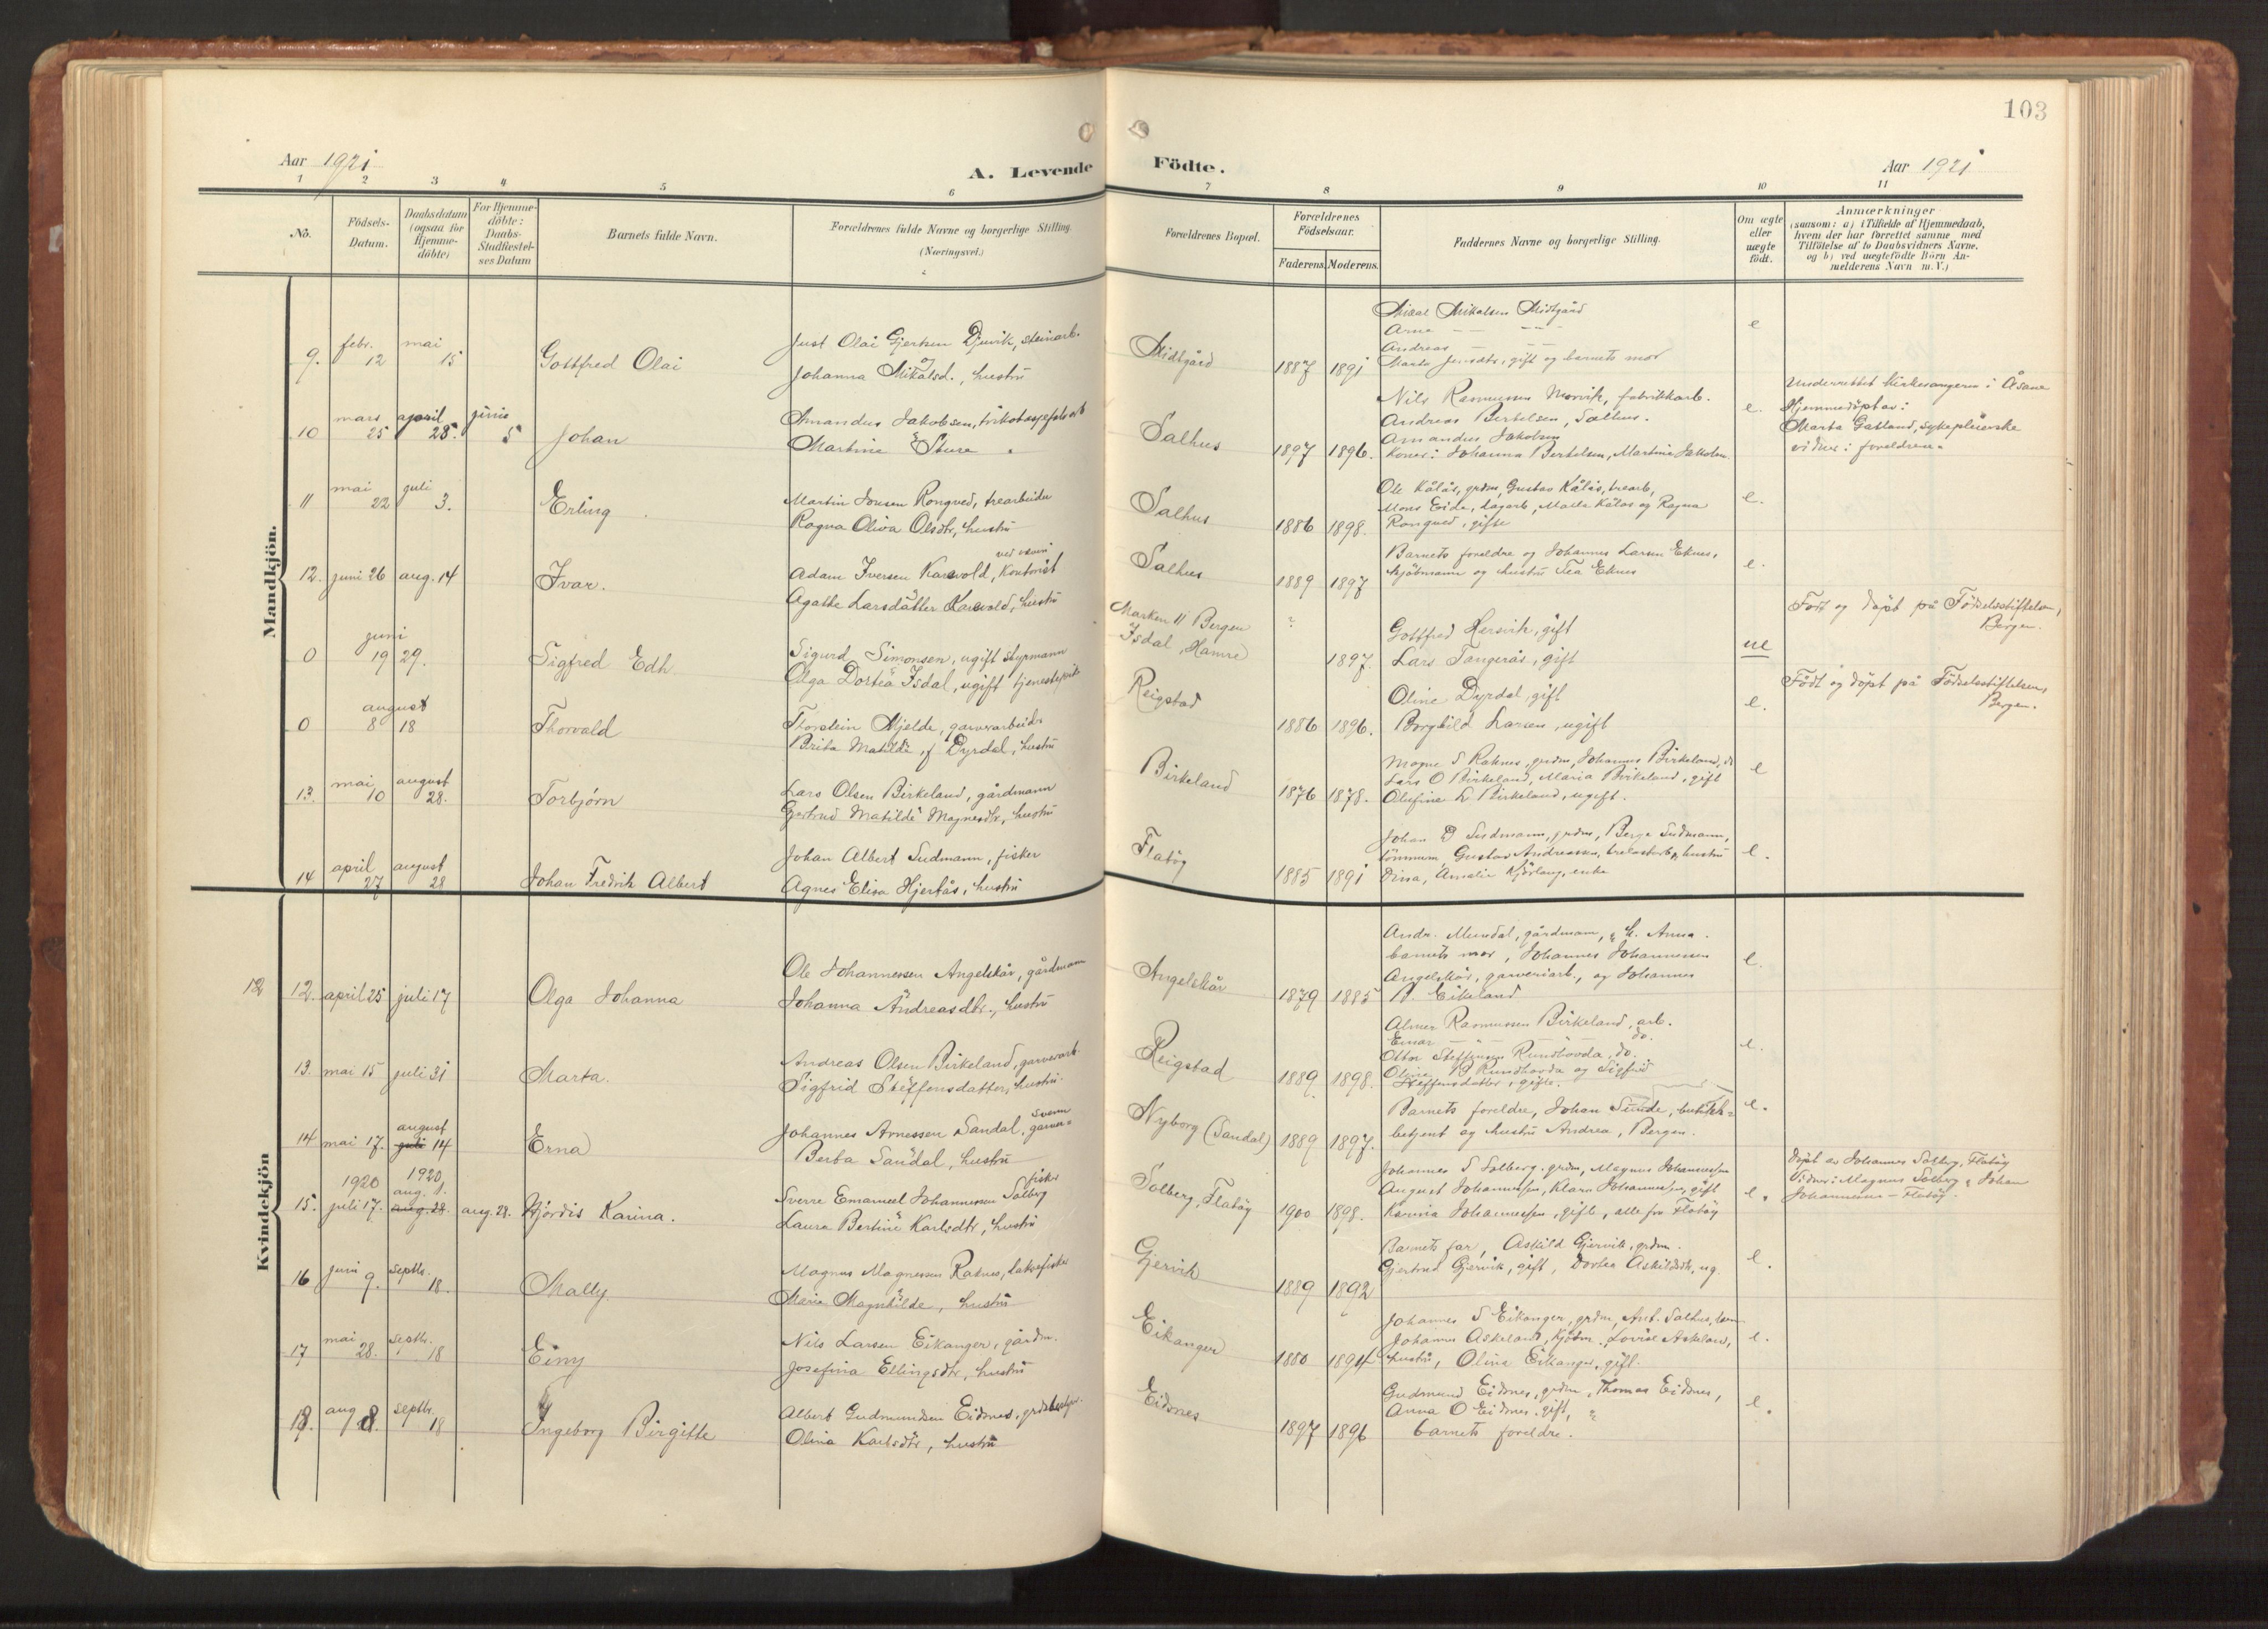 103
Aar 1921
A. Levende Födte.
Aar 1921
1 2 3 4 5 6 7 8 9 10 11
No.
Födsels-Datum.
Daabsdatum (ogsaa for Hjemme-döbte)
For Hjemme-döbte: Daabs-Stadfæstel-ses Datum
Barnets fulde Navn.
Forældrenes fulde Navne og borgerlige Stilling.
(Næringsvei.)
Forældrenes Bopæl.
Forældrenes Födselsaar.
Faderens. Moderens.
Faddernes Navne og borgerlige Stilling.
Om ægte eller uægte födt.
Anmærkninger
(saasom: a) i Tilfælde af Hjemmedaab,
hvem der har forrettet samme med
Tilföielse af to Daabsvidners Navne.
og b) ved uægtefödte Börn An-
melderens Navn m. V.)
Mandkjön.
9. febr. 12 mai 15 Gottfred Olai
Just Olai Gjertsen Djuvik, steinarb.
og
Johanna Mikalsd., hustru
Midtgård 1887 1891
Mikal Mikalsen Midtgård
Arne — — —
Andreas — — —
Marta Jensdtr, gift og barnets mor
e
10 mars 25 april 28. juni 5 Johan
Amandus Jakobsen,
Martine Sture
Salhus 1897 1896.
Nils Rasmussen Morvik, fabrikkarb.
Andreas Bertelsen, Salhus.
Amandus Jakobsen
Koner: Johanna Bertelsen, Martine Jakobsen.
e.
Underrettet kirkesangeren i Åsane
Hjemmedöpt av:
Marta Gatland, sykepleierske
vidner: foreldrene
11 mai 22 juli 3. Erling
Martin Jonsen Rongved, trearbeider
Ragna Oliva Olsdtr, hustru
Salhus 1886 1898.
Ole Kålås, grdm, Gustav Kålås, trearb,
Mons Eide, dagarb, Malla Kålås og Ragna
Rongved, gifte
e.
12. juni 26 aug. 14 Ivar.
Adam Iversen Karvold, kontorist
Agathe Larsdatter Karvold, hustru
Salhus 1889 1897
Barnets foreldre og Johannes Larsen Eknes,
kjöbmann og hustru Tea Eknes
e.
0 juni 19 29. Sigfred Edh
Sigurd Simonsen, ugift styrmann
Olga Dortea Isdal, ugift tjenestepike
Marken 11 Bergen
Isdal, Hamre
? 1897.
Gottfred Hersvik, gift
Lars Tangerås, gift
ue
Födt og döpt på Födselsstiftelsen,
Bergen.
0 august 8 18 Thorvald
Thorstein Mjelde, garverarbeider
Brita Matilde, f Dyrdal, hustru
Reigstad 1886 1896.
Oline Dyrdal, gift
Borghild Larsen, ugift
e.
Födt og döpt på Födselsstiftelsen,
Bergen.
13. mai 10 august 28. Torbjørn
Lars Olsen Birkeland, gårdmann
Gjertrud Matilde Magnesdtr, hustru
Birkeland 1876 1878.
Magne S Raknes, grdm, Johannes Birkeland, do
Lars O Birkeland, Maria Birkeland, gift
Olufine L Birkeland, ugift.
e
14 april 27 august 28 Johan Fredrik Albert
Johan Albert Sudmann, fisker
Agnes Elisa Hjertås, hustru
Flatöy 1885 1891
Johan D Sudmann, grdm, Berge Sudmann,
Gustav Andreassen, hustru
Dina, Amalie enke
e.
Kvindekjön
12 12. april 25 juli 17 Olga Johanna
Ole Johannessen Angelskår, gårdmann
Johanna Andreasdtr., hustru
Angelskår 1879 1885
Andr. Mundal, gårdmann, h. Anna.
barnets mor, Johannes Johannessen
Angelskår, garveriarb., og Johannes
Eikeland
e.
13. mai 15 juli 31 Marta.
Andreas Olsen Birkeland, garverarb.
Sigfrid Steffensdatter, hustru.
Reigstad 1889. 1898.
Almer Rasmussen Birkeland, arb.
Einar — " — do.
Ottar Steffensen Rundhovda, do.
Oline B Rundhovda og Sigfrid
Steffensdatter, gifte.
e.
14 mai 17. august juli 14 Erna
Johannes Arnessen Sandal, garver-
svenn
Berta Sandal, hustru
Nyborg (Sandal) 1889 1897.
Barnets foreldre, Johan Sunde, butikk-
betjent og hustru Andrea, Bergen.
e.
15. 1920 juli 17. 1920 aug. 1. aug. 28. aug. 28. Hjördis Karina.
Sverre Emanuel Johannessen Solberg
fisker
Laura Bertine Karlsdtr, hustru
Solberg, Flatöy 1900 1898.
Johannes S Solberg, grdm, Magnus Johannessen
August Johannessen, Klara Johannessen, gift
Karina Johannessen, gifte, alle fra Flatöy
e.
Döpt av Johannes Solberg, Flatöy
Vidner: Magnus Solberg, Johan
Johannessen – Flatöy.
16 juni 9. septbr. 18. Mally
Magnus Magnessen Raknes, laksefisker
Marie Magnhilde, hustru
Gjervik 1889 1892
Barnets far, Askild Gjervik, grdm.
Gjertrud Gjervik, gift, Dortea Askildsdtr, ug.
e.
17 mai 28. septbr. 18 Einy
Nils Larsen Eikanger, gårdm.
Josefina Ellingsdtr, hustru
Eikanger 1880 1894
Johannes S Eikanger, grdm, Ant. Salhus,
Johannes Askeland, kjöbm. Lovise Askeland,
hustru, Olina Eikanger, gift.
e.
18. aug 8. septbr. 18 Ingeborg Birgitte
Albert Gudmundsen Eidsnes, grdsbestyr.
Olina Karlsdtr, hustru
Eidsnes 1897 1896
Gudmund Eidsnes, grdm, Thomas Eidsnes,
Anna O Eidsnes, gift,
barnets foreldre.
e.